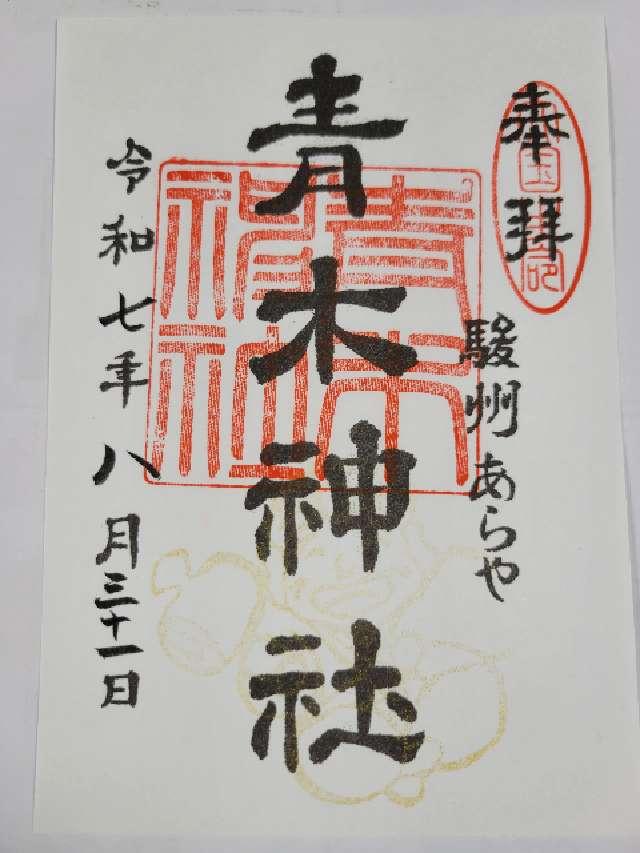 奉拝
駿州あらや
青木神社
青木神社
令和七年八月三十一日